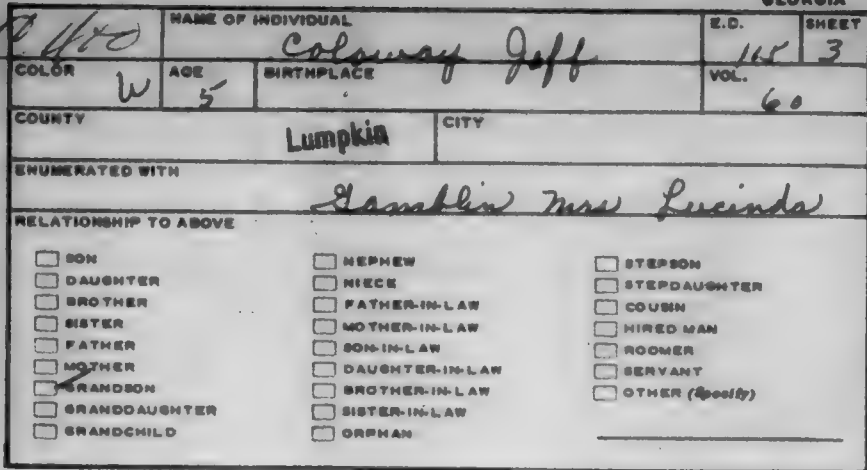 GEORGIA
NAME OF INDIVIDUAL
E.D.
SHEET
Jeff
115
3
COLOR
AGE
BIRTHPLACE
VOL.
W
5
60
COUNTY
CITY
Lumpkin
ENUMERATED WITH
Gamblin Mrs Lucinda
RELATIONSHIP TO ABOVE
SON
DAUGHTER
BROTHER
SISTER
FATHER
MOTHER
GRANDSON
GRANDDAUGHTER
GRANDCHILD
NEPHEW
NIECE
FATHER-IN-LAW
MOTHER-IN-LAW
SON-IN-LAW
DAUGHTER-IN-LAW
BROTHER-IN-LAW
SISTER-IN-LAW
ORPHAN
STEPSON
STEPDAUGHTER
COUSIN
HIRED MAN
ROOMER
SERVANT
OTHER (Specify)